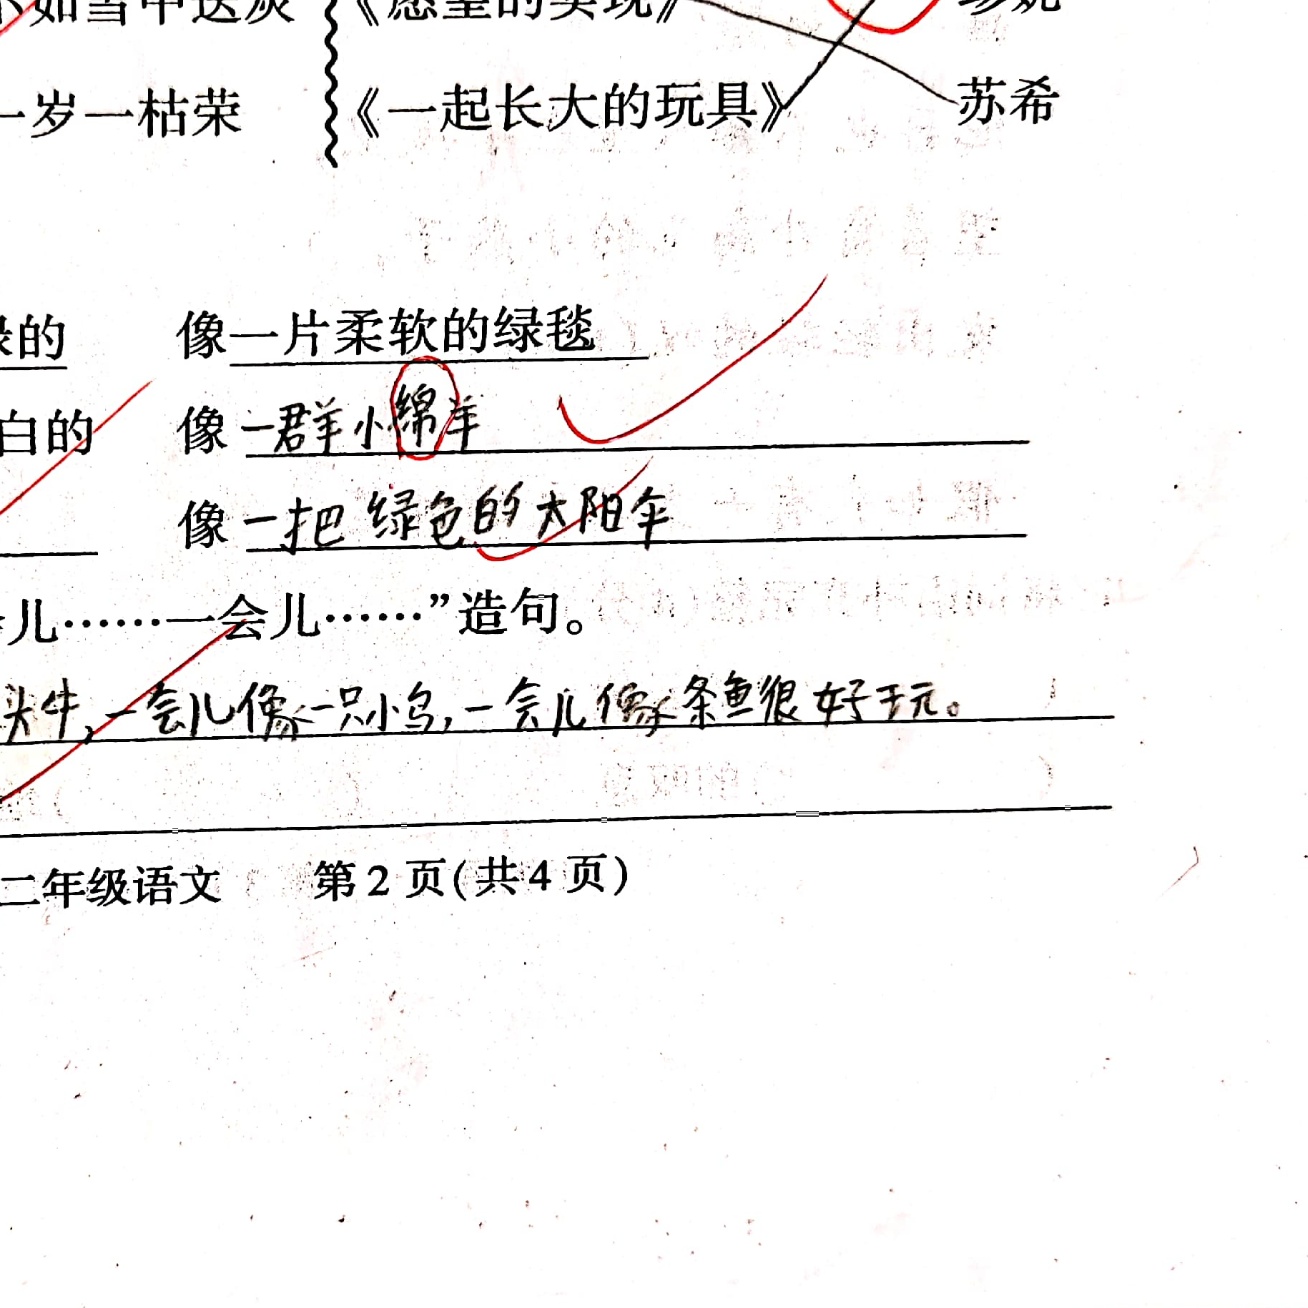 不如雪中送炭 《愿望的实现》
一岁一枯荣 《一起长大的玩具》 苏希
绿的 像一片柔软的绿毯
白的 像一群羊小绵羊
像一把绿色的太阳伞
儿……一会儿……”造句。
头牛,一会儿像一只小鸟,一会儿像条鱼很好玩。
二年级语文 第2页(共4页)